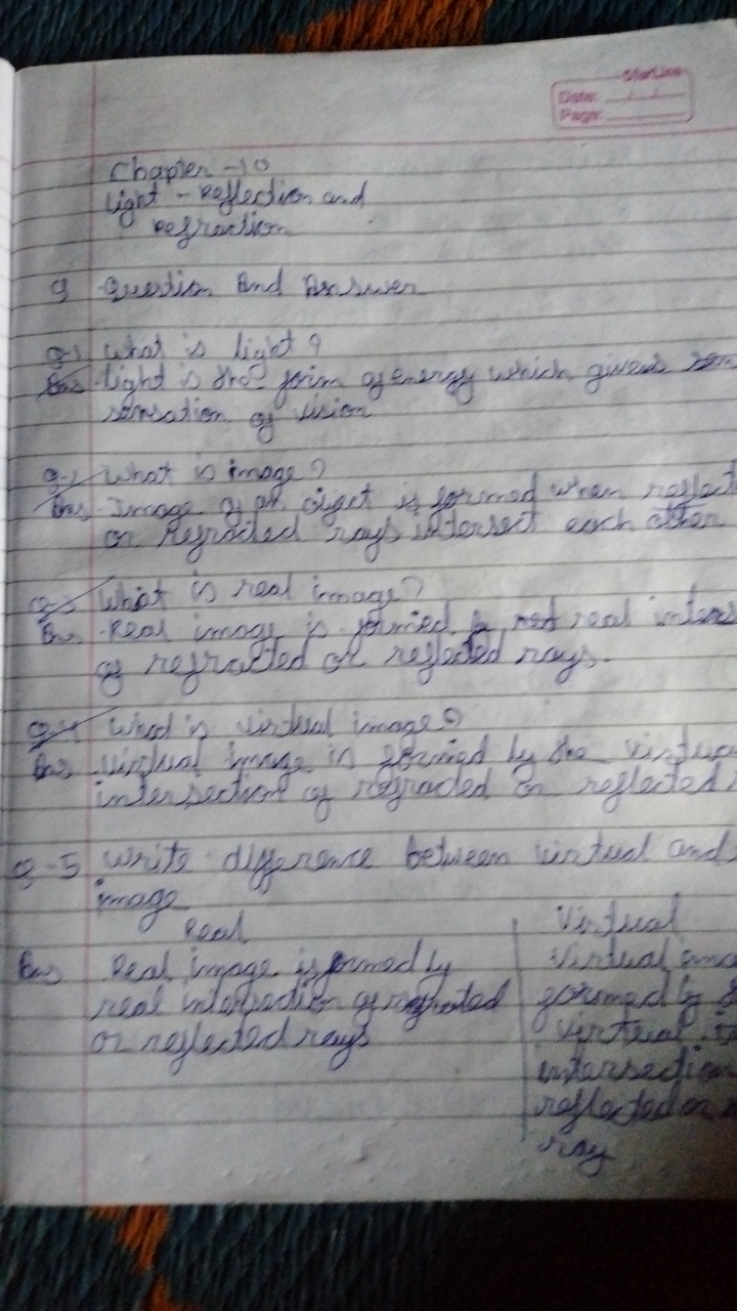 StarLine
Date: / /
Page:
Chapter - 10
Light - Reflection and
Refraction
Q Question And Answer
Q-1 What is light?
Ans Light is the form of energy which gives
sensation of vision
Q-2 What is image?
Ans Image of an object is formed when reflect
or Refracted rays intersect each other
Q-3 What is real image?
Ans Real image is formed real inters
of refracted or reflected rays.
Q-4 What is virtual image?
Ans Virtual image is formed by the virtua
intersection of refracted or reflected
Q-5 Write difference between virtual and
image
Real Virtual
Ans Real image is formed by
real intersection of refracted
or reflected rays
Virtual ima
formed by
virtual
intersection
reflected or
ray